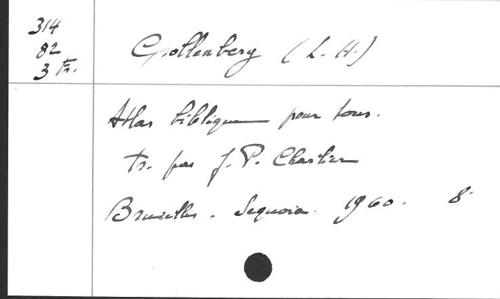 314
82
3 Tr.
Grollenberg (L. H.)
Atlas biblique pour tous.
Tr. par J. P. Charlier
Bruxelles. Sequoia. 1960. 8°